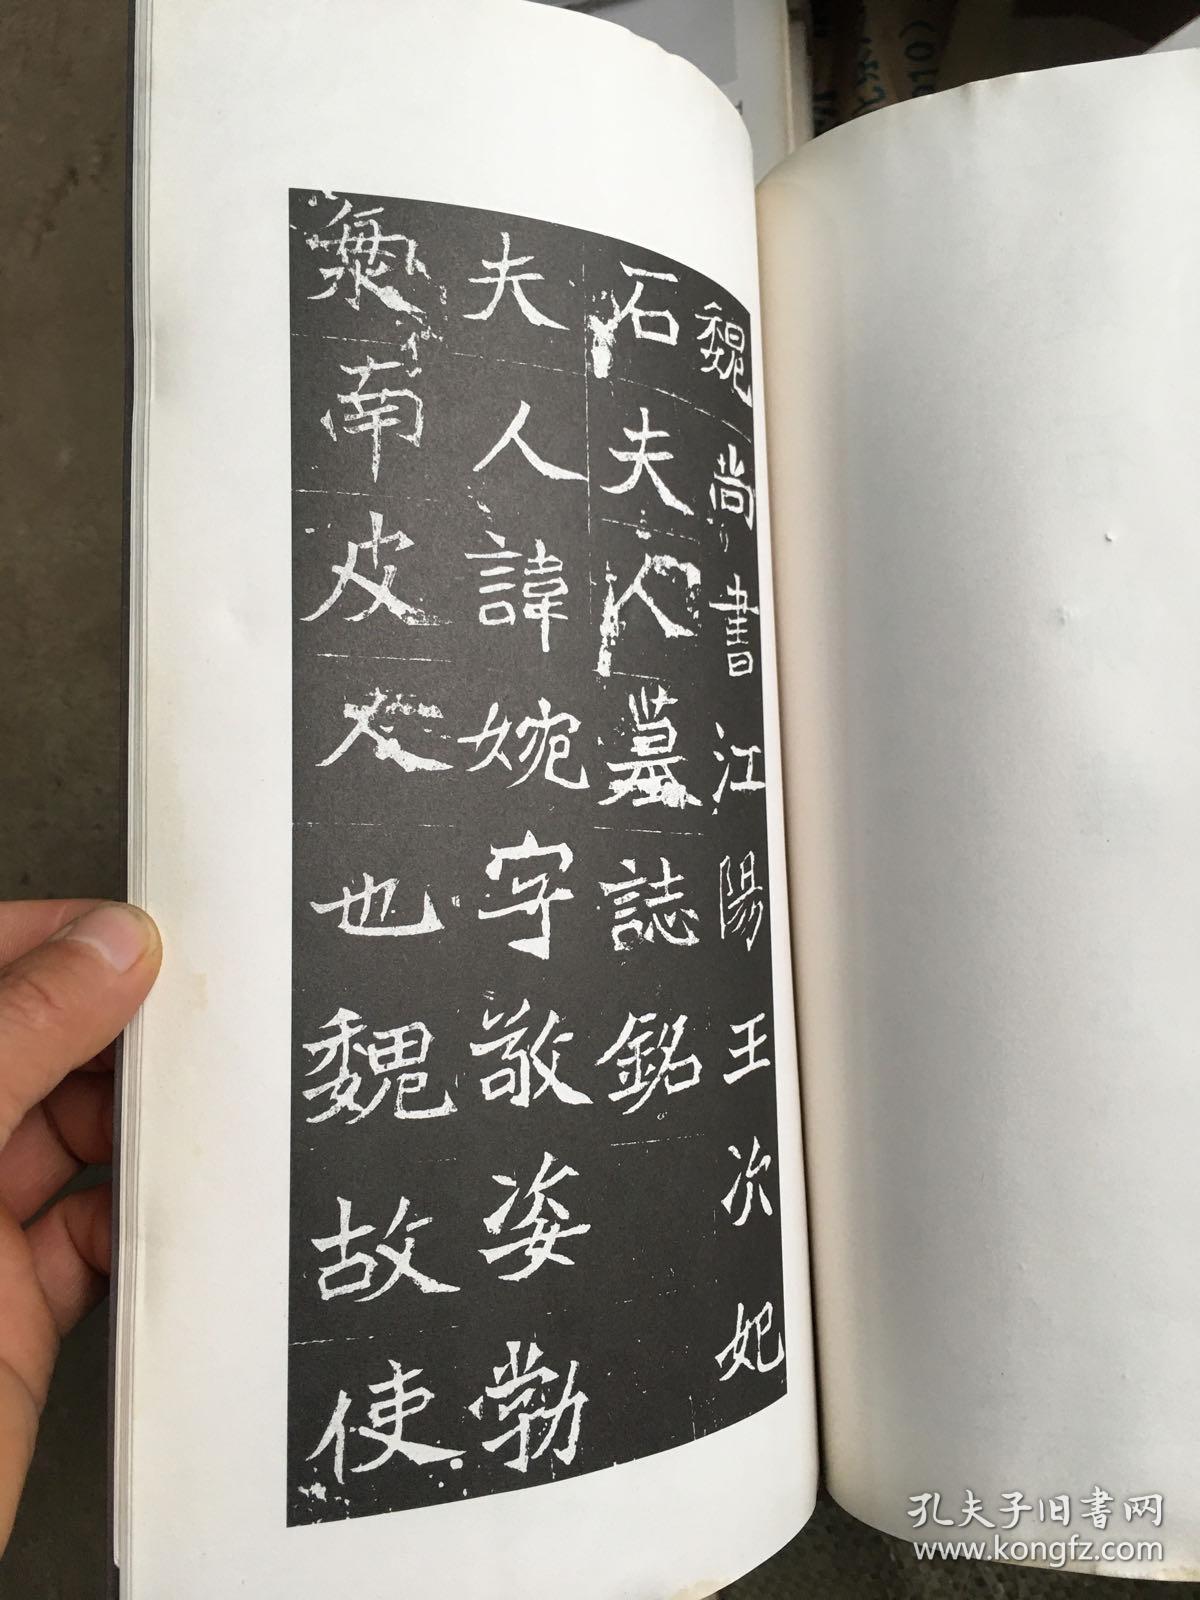 魏尚書江陽王次妃
石夫人墓誌銘
夫人諱婉字敬姿勃
海南皮人也魏故使
孔夫子旧书网
www.kongfz.com